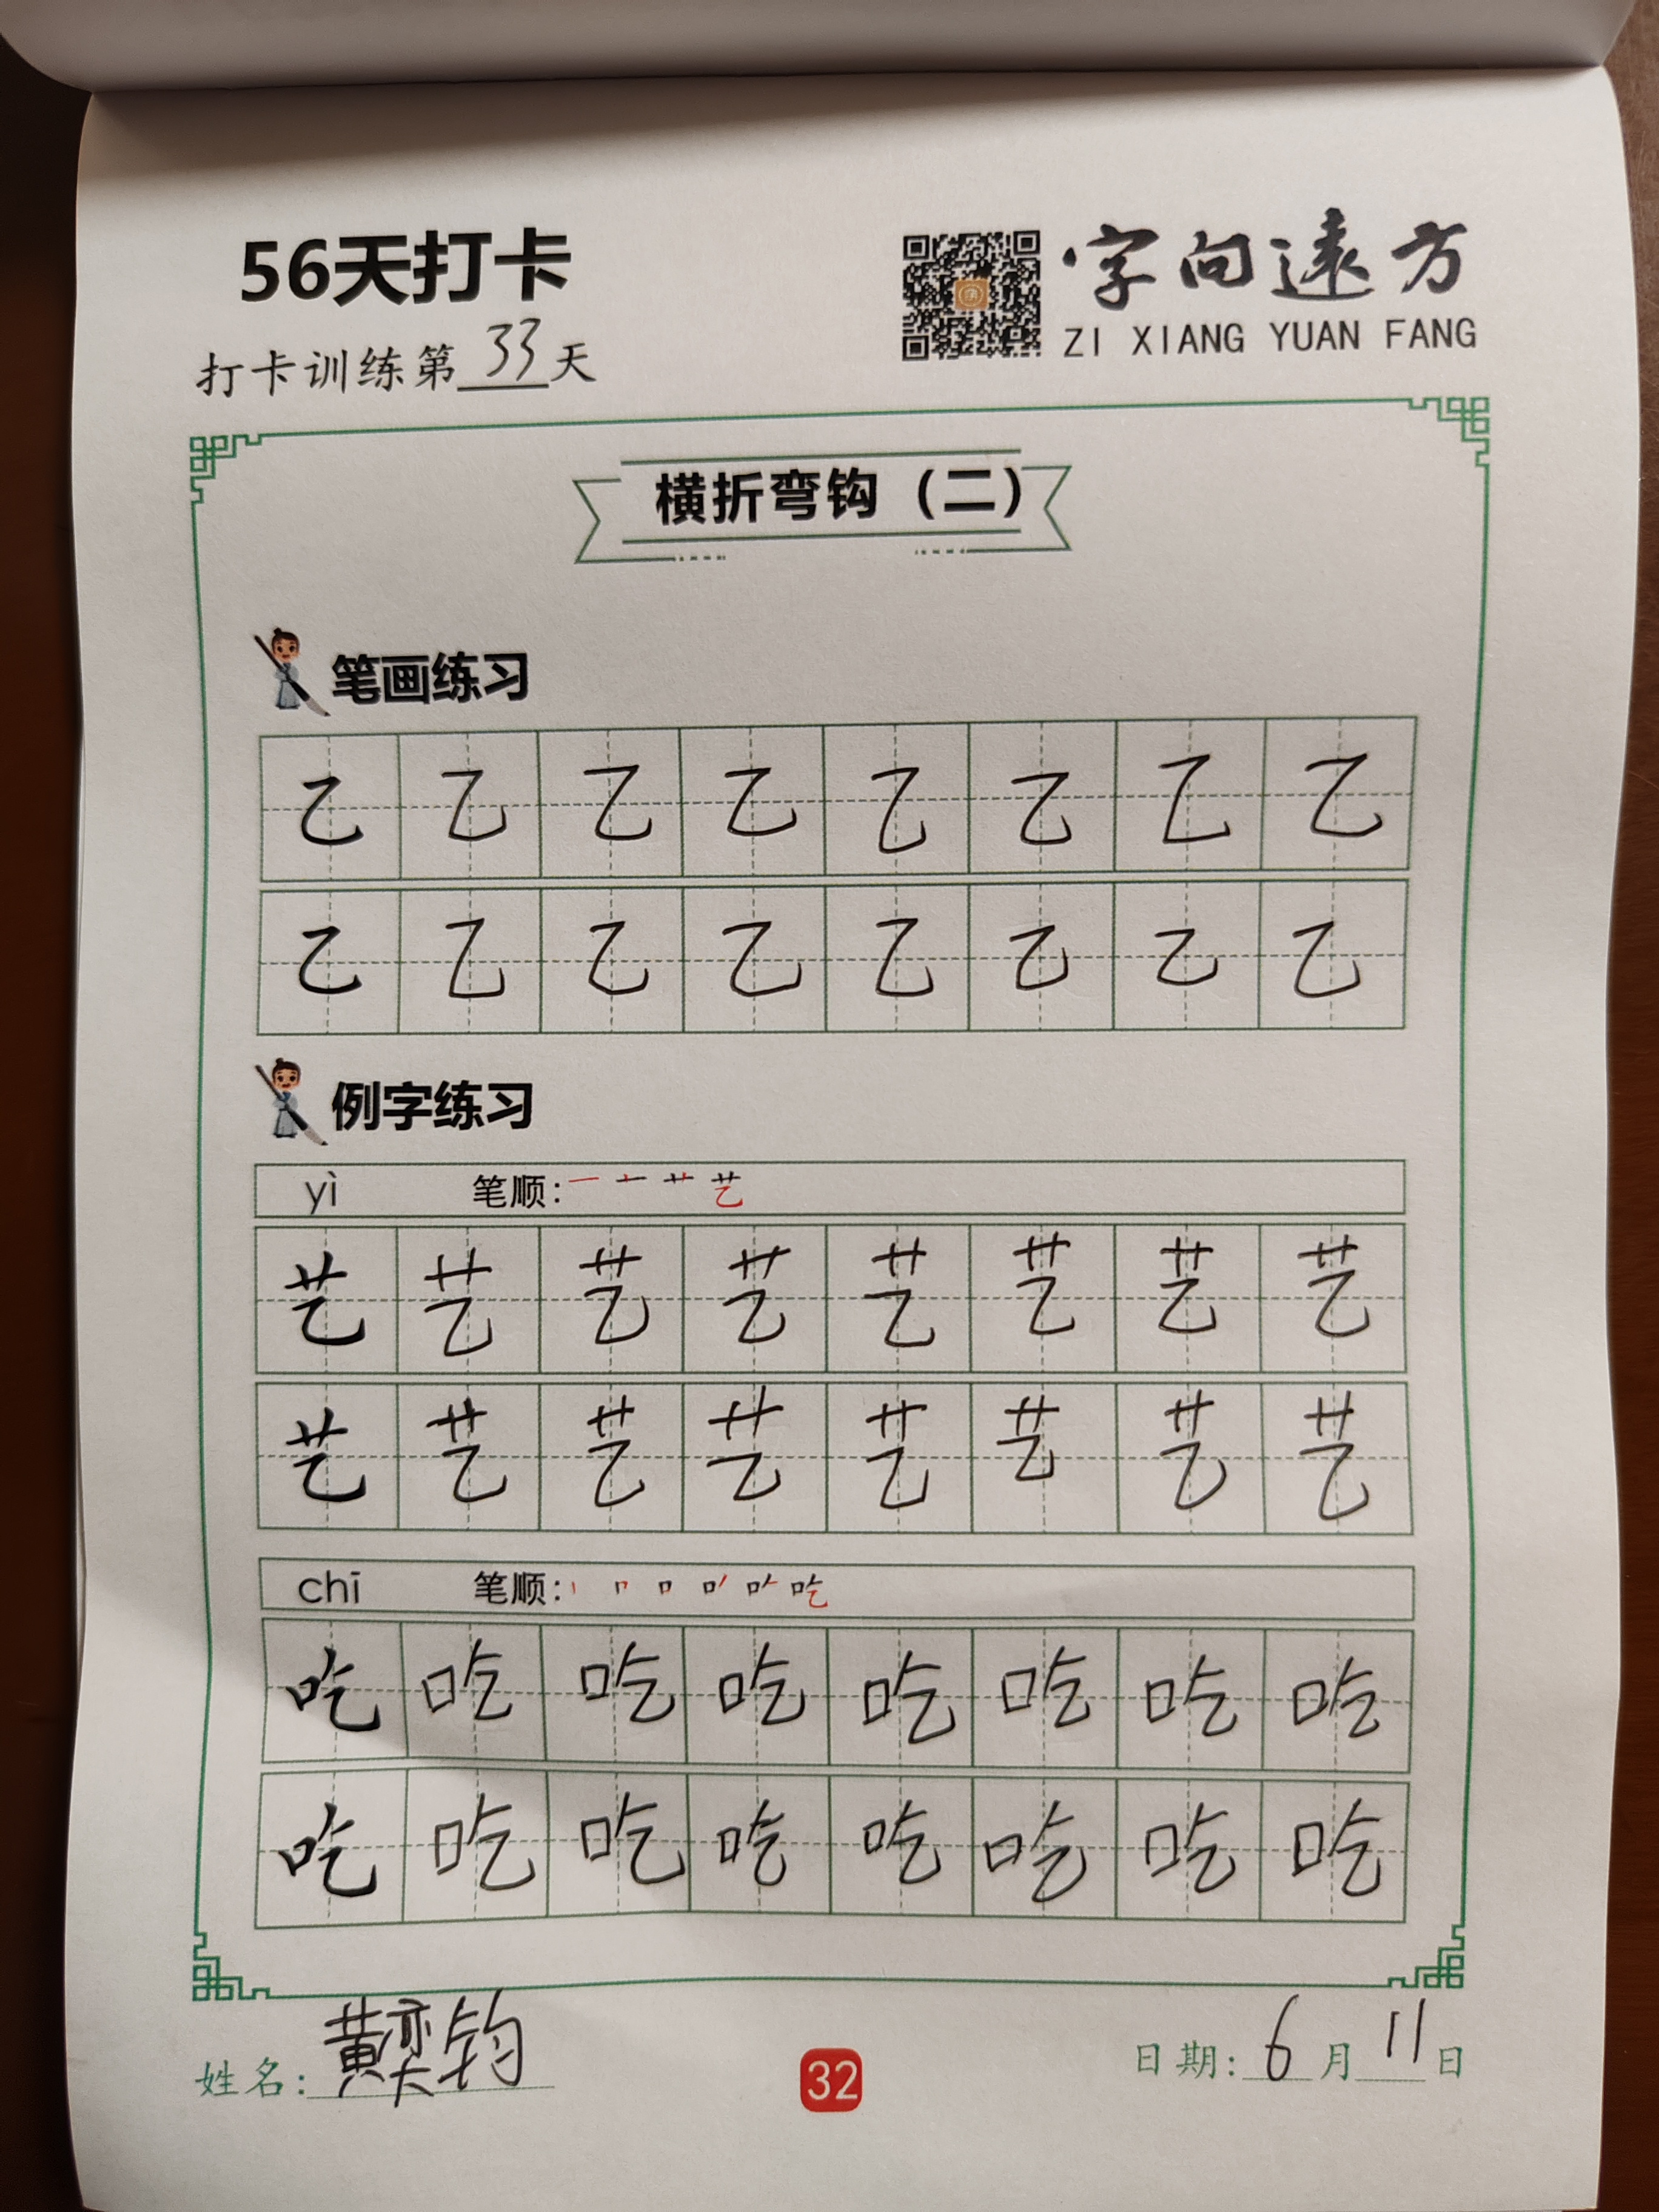 56天打卡
字向遠方
ZI XIANG YUAN FANG
打卡训练第33天
横折弯钩（二）
笔画练习
乙 乙 乙 乙 乙 乙 乙 乙
乙 乙 乙 乙 乙 乙 乙 乙
例字练习
yì 笔顺：一 十 艹 艺
艺 艺 艺 艺 艺 艺 艺 艺
艺 艺 艺 艺 艺 艺 艺 艺
chī 笔顺：丨 𠃍 口 口丿 口𠂉 吃
吃 吃 吃 吃 吃 吃 吃 吃
吃 吃 吃 吃 吃 吃 吃 吃
姓名：黄奕钧
32
日期：6月11日